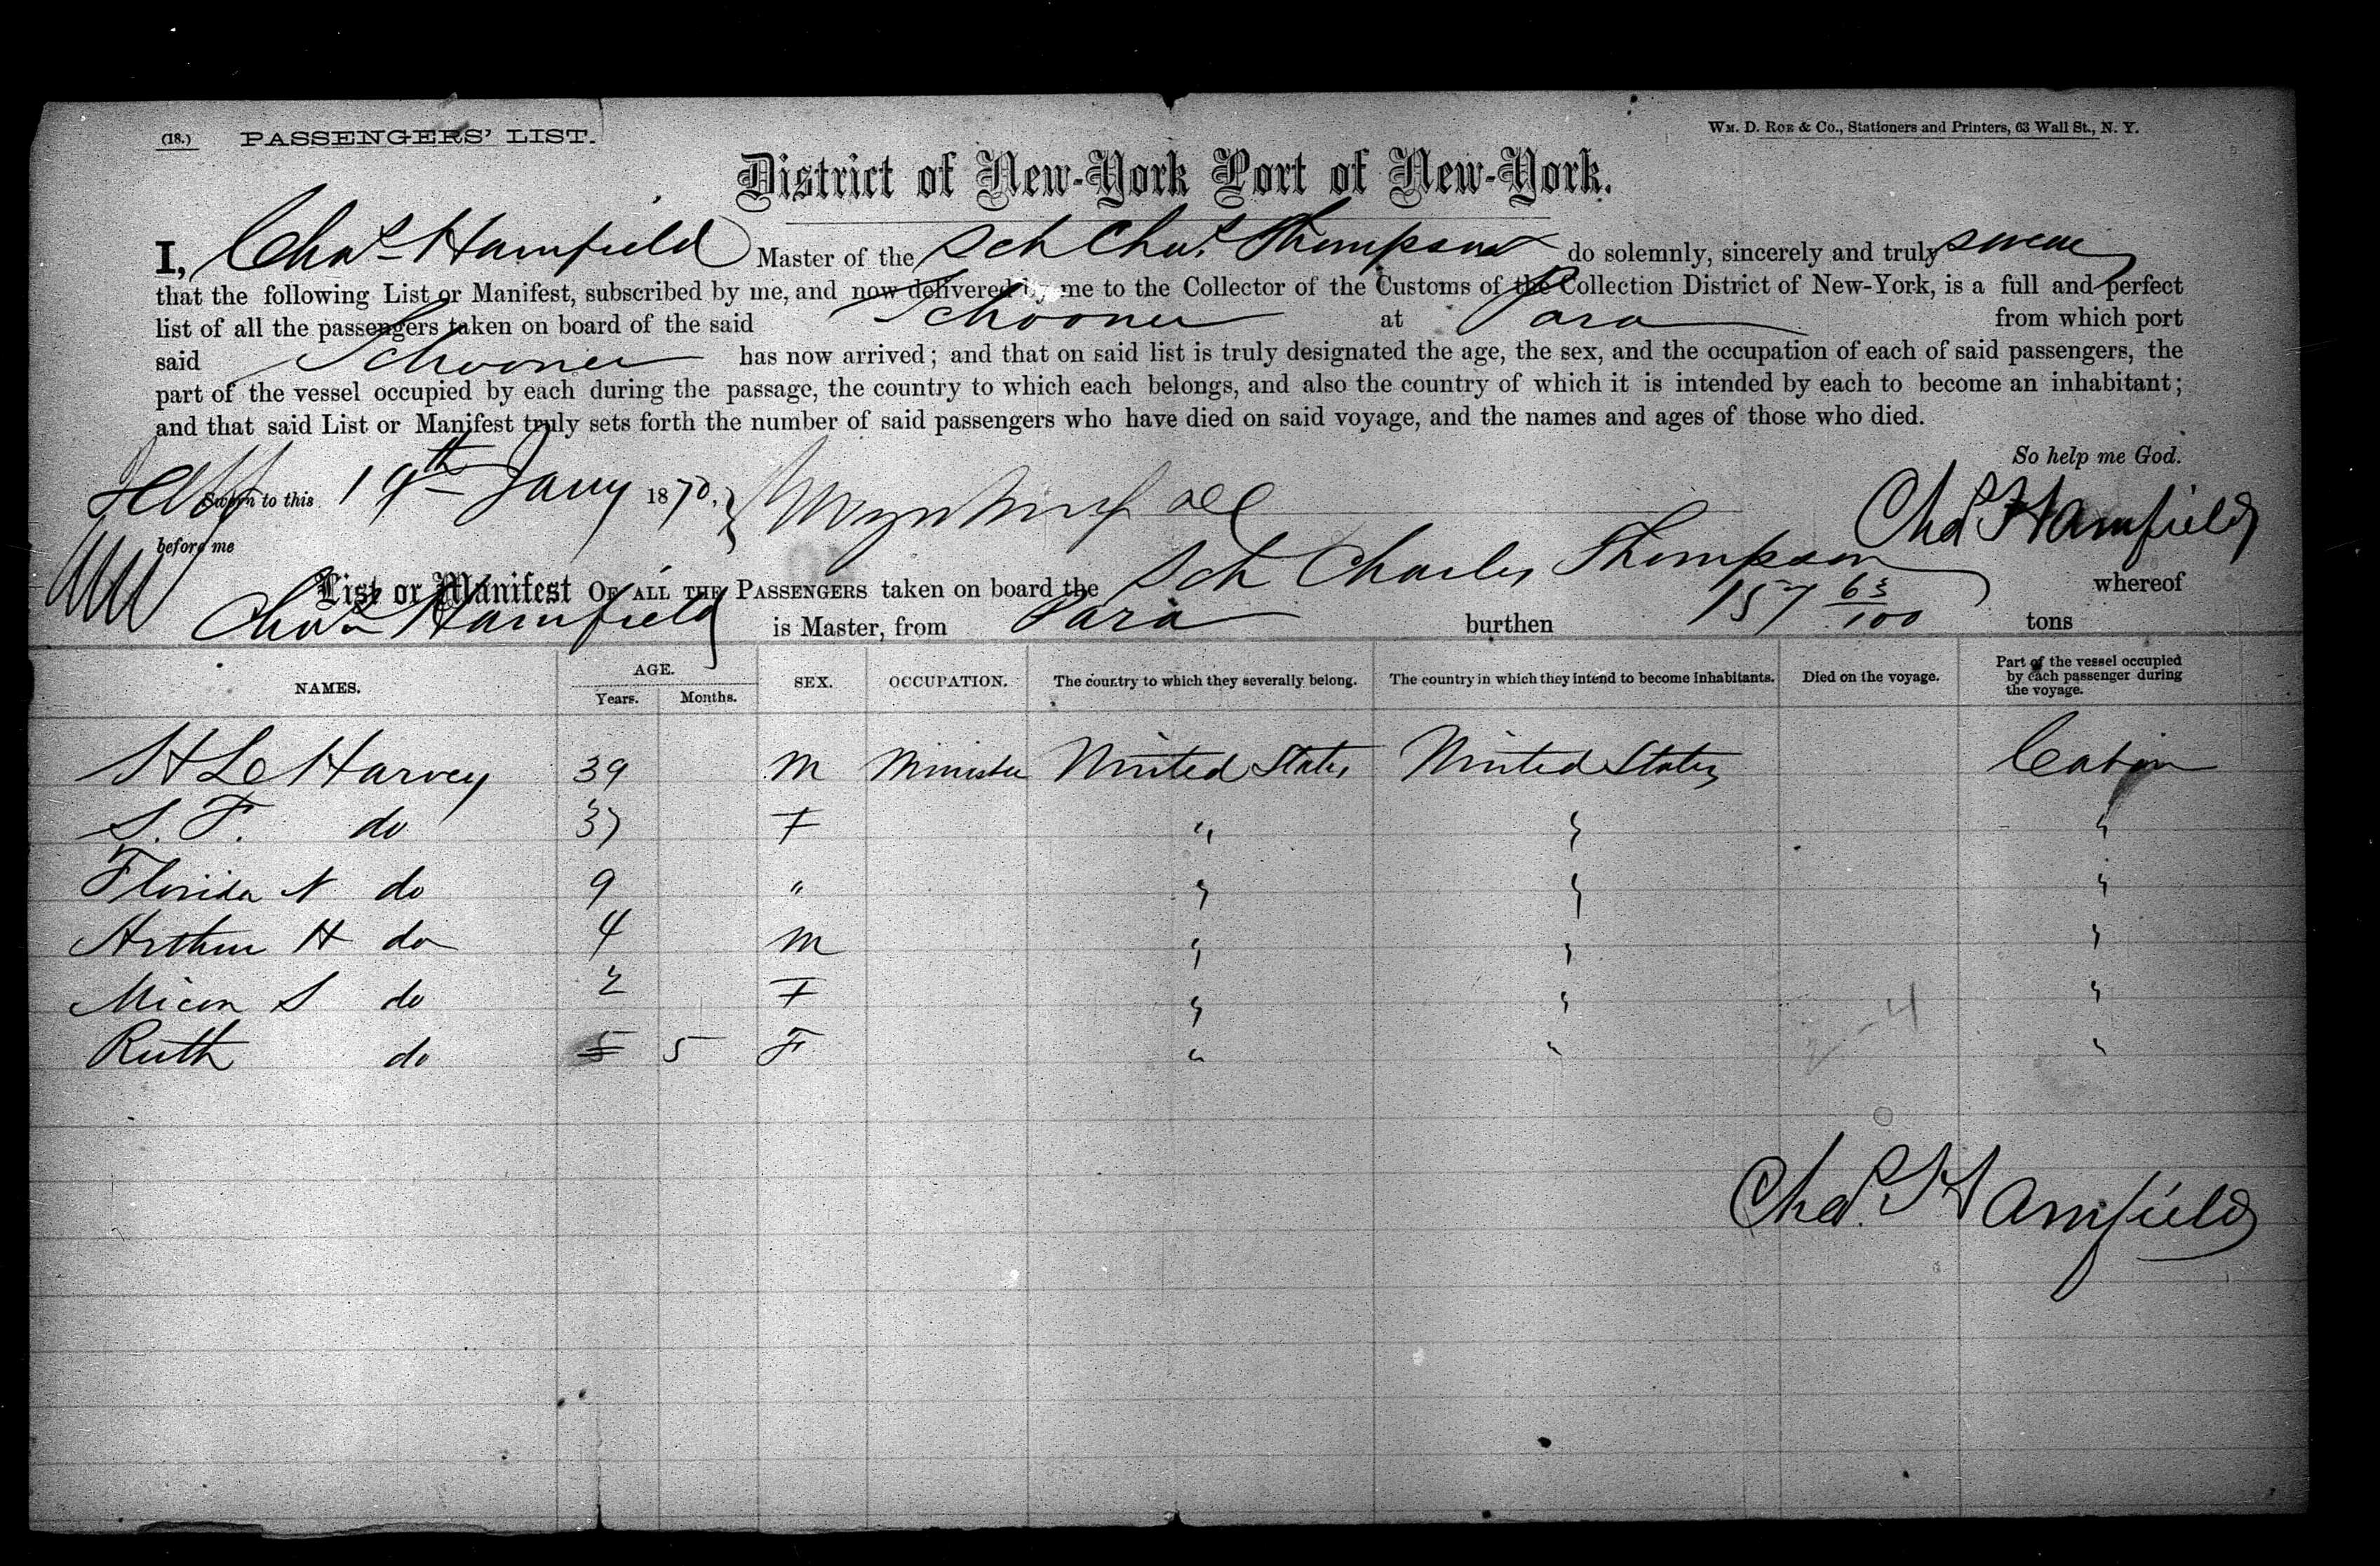 (18.) PASSENGERS' LIST.
WM. D. ROE & CO., Stationers and Printers, 63 Wall St., N. Y.
District of New-York Port of New-York.
I, Chas Hamfield Master of the Sch Chas. Thompson do solemnly, sincerely and truly swear
that the following List or Manifest, subscribed by me, and now delivered by me to the Collector of the Customs of the Collection District of New-York, is a full and perfect
list of all the passengers taken on board of the said Schooner at Para from which port
said Schooner has now arrived; and that on said list is truly designated the age, the sex, and the occupation of each of said passengers, the
part of the vessel occupied by each during the passage, the country to which each belongs, and also the country of which it is intended by each to become an inhabitant;
and that said List or Manifest truly sets forth the number of said passengers who have died on said voyage, and the names and ages of those who died.
So help me God.
Sworn to this 19th Jany 1870, Chas Hamfield
before me
List or Manifest OF ALL THE PASSENGERS taken on board the Sch Charles Thompson whereof
Chas Hamfield is Master, from Para burthen 157 63/100 tons
NAMES. AGE. Years. Months. SEX. OCCUPATION. The country to which they severally belong. The country in which they intend to become inhabitants. Died on the voyage. Part of the vessel occupied by each passenger during the voyage.
H Le Harvey 39 M Minister United States United States Cabin
S. F. do 37 F " " "
Florida N do 9 " " " "
Arthur H do 4 M " " "
Micon S do 2 F " " "
Ruth do 5 5 F " " "
2-4
Chas. Hamfield